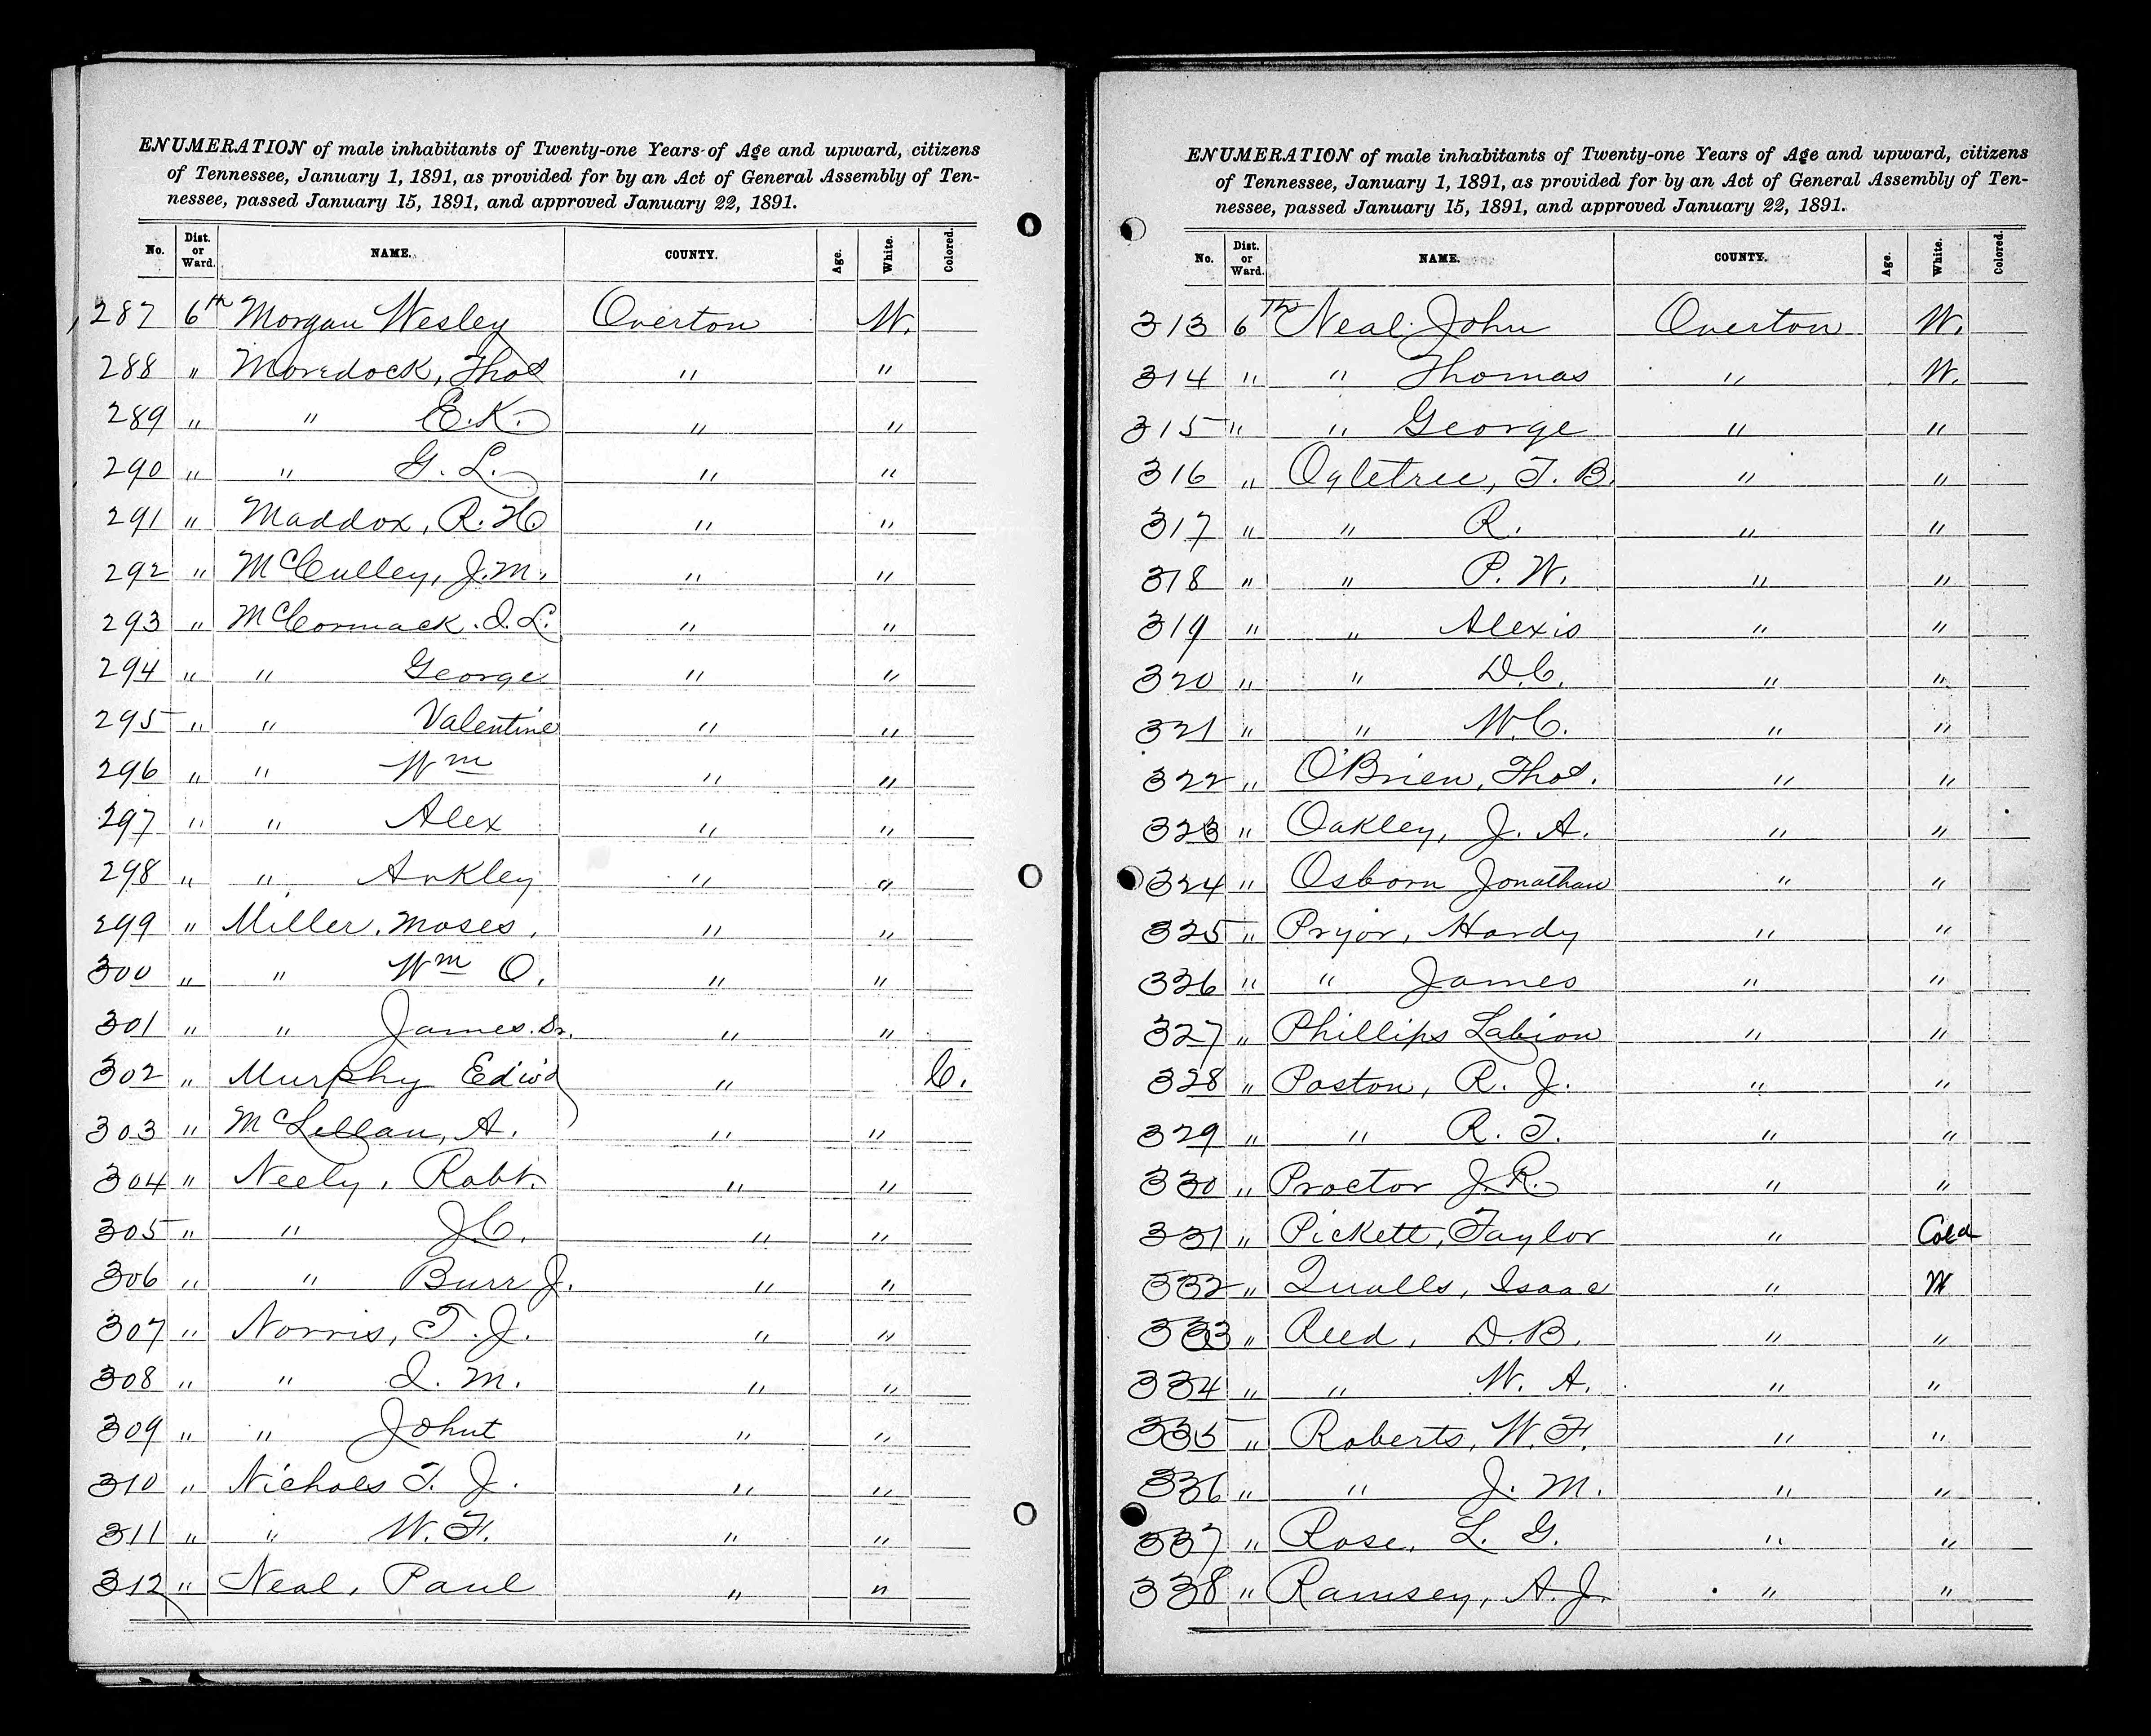 ENUMERATION of male inhabitants of Twenty-one Years of Age and upward, citizens
of Tennessee, January 1, 1891, as provided for by an Act of General Assembly of Ten-
nessee, passed January 15, 1891, and approved January 22, 1891.
No. Dist. or Ward. NAME. COUNTY. Age. White. Colored.
287 6th Morgan Wesley Overton W.
288 " Moredock, Thos " "
289 " " E. K. " "
290 " " G. L. " "
291 " Maddox, R. H " "
292 " McCulley, J. M. " "
293 " McCormack. I. L. " "
294 " " George " "
295 " " Valentine " "
296 " " Wm " "
297 " " Alex " "
298 " " Ankley " "
299 " Miller. Moses. " "
300 " " Wm O. " "
301 " " James. Sr. " "
302 " Murphy Edw'd " C.
303 " McLellan, A. " "
304 " Neely, Robt. " "
305 " " J. C. " "
306 " " Burr J. " "
307 " Norris, T. J. " "
308 " " I. M. " "
309 " " Johnt " "
310 " Nichols T. J. " "
311 " " W. F. " "
312 " Neal, Paul " "
ENUMERATION of male inhabitants of Twenty-one Years of Age and upward, citizens
of Tennessee, January 1, 1891, as provided for by an Act of General Assembly of Ten-
nessee, passed January 15, 1891, and approved January 22, 1891.
No. Dist. or Ward. NAME. COUNTY. Age. White. Colored.
313 6th Neal John Overton W.
314 " " Thomas " W.
315 " " George " "
316 " Ogletree, T. B. " "
317 " " R. " "
318 " " P. W. " "
319 " " Alexis " "
320 " " D. C. " "
321 " " W. C. " "
322 " O'Brien, Thos. " "
323 " Oakley, J. A. " "
324 " Osborn Jonathan " "
325 " Pryor, Hardy " "
326 " " James " "
327 " Phillips Labion " "
328 " Poston, R. J. " "
329 " " R. T. " "
330 " Proctor J. R. " "
331 " Pickett, Taylor " Cold
332 " Qualls, Isaac " W
333 " Reed, D. B. " "
334 " " W. A. " "
335 " Roberts, W. F. " "
336 " " J. M. " "
337 " Rose, L. G. " "
338 " Ramsey, A. J. " "